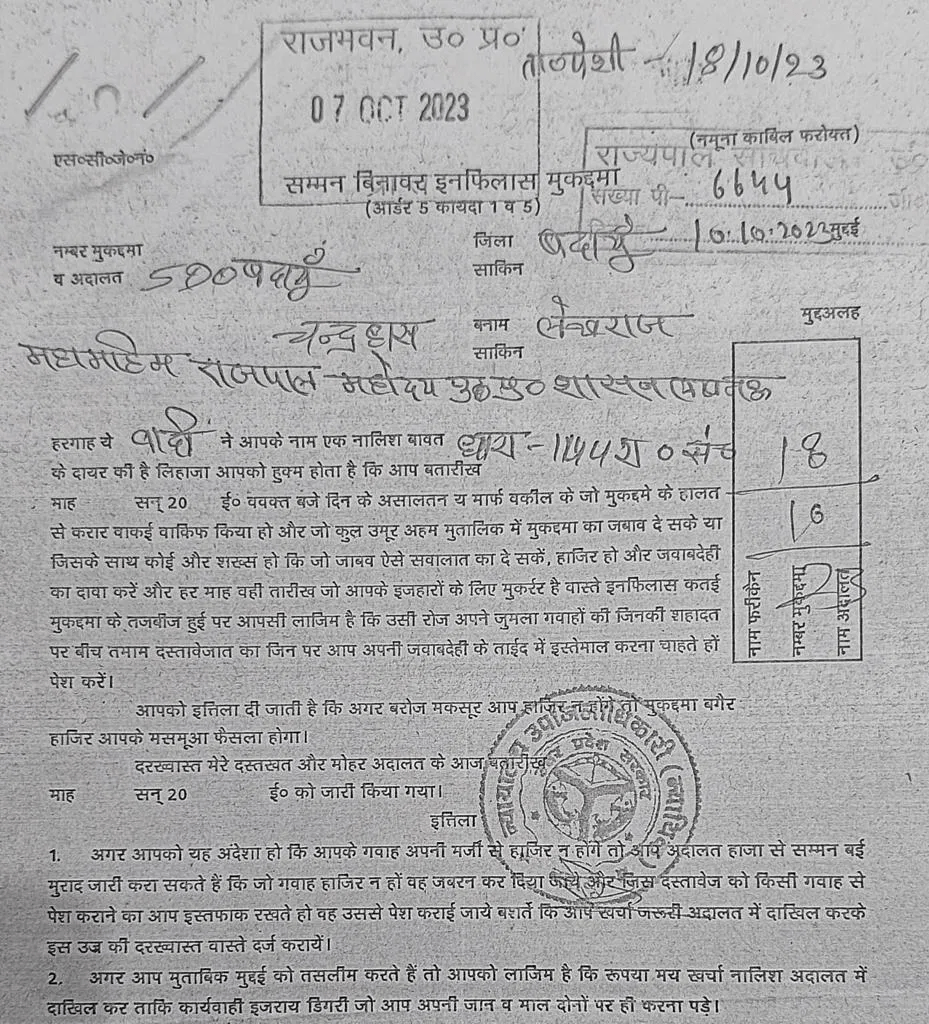 राजभवन, उ० प्र०
ता०पेशी - 18/10/23
07 OCT 2023
(नमूना काबिल फरोक्त)
एस०सी०जे०नं०
राज्यपाल
सम्मन बिनावर इनफिलास मुकद्दमा
संख्या पी- 6644
(आर्डर 5 कायदा 1 व 5)
नम्बर मुकद्दमा
जिला बदायूँ 10.10.2023 मुद्दई
व अदालत SDO बदायूँ
साकिन
चन्द्रहास बनाम लेखराज मुद्दअलह
साकिन
महामहिम राजपाल महोदय शासन
हरगाह ये वादी ने आपके नाम एक नालिश बावत धारा-144 रा० सं०
के दायर की है लिहाजा आपको हुक्म होता है कि आप बतारीख
माह सन् 20 ई० ववक्त बजे दिन के असालतन य मार्फ वकील के जो मुकद्दमे के हालत
से करार वाकई वाकिफ किया हो और जो कुल उमूर अहम मुतालिक में मुकद्दमा का जबाव दे सके या
जिसके साथ कोई और शख्स हो कि जो जाबव ऐसे सवालात का दे सकें, हाजिर हो और जवाबदेही
का दावा करें और हर माह वही तारीख जो आपके इजहारों के लिए मुकर्रर है वास्ते इनफिलास कतई
मुकद्दमा के तजबीज हुई पर आपसी लाजिम है कि उसी रोज अपने जुमला गवाहों की जिनकी शहादत
पर बीच तमाम दस्तावेजात का जिन पर आप अपनी जवाबदेही के ताईद में इस्तेमाल करना चाहते हों
पेश करें।
18
10
नाम फरीकेन
नम्बर मुकद्दमा
नाम अदालत
आपको इत्तिला दी जाती है कि अगर बरोज मकसूर आप हाजिर न होंगे तो मुकद्दमा बगैर
हाजिर आपके मसमूआ फैसला होगा।
दरख्वास्त मेरे दस्तखत और मोहर अदालत के आज बतारीख
माह सन् 20 ई० को जारी किया गया।
न्यायालय उपजिलाधिकारी (न्यायिक)
उत्तर प्रदेश सरकार
इत्तिला
1. अगर आपको यह अंदेशा हो कि आपके गवाह अपनी मर्जी से हाजिर न होंगे तो आप अदालत हाजा से सम्मन बई
मुराद जारी करा सकते हैं कि जो गवाह हाजिर न हों वह जबरन कर दिया जाये और जिस दस्तावेज को किसी गवाह से
पेश कराने का आप इस्तफाक रखते हो वह उससे पेश कराई जाये बशर्ते कि आप खर्चा जरूरी अदालत में दाखिल करके
इस उज्र की दरख्वास्त वास्ते दर्ज करायें।
2. अगर आप मुताबिक मुद्दई को तसलीम करते हैं तो आपको लाजिम है कि रूपया मय खर्चा नालिश अदालत में
दाखिल कर ताकि कार्यवाही इजराय डिगरी जो आप अपनी जान व माल दोनों पर ही करना पड़े।